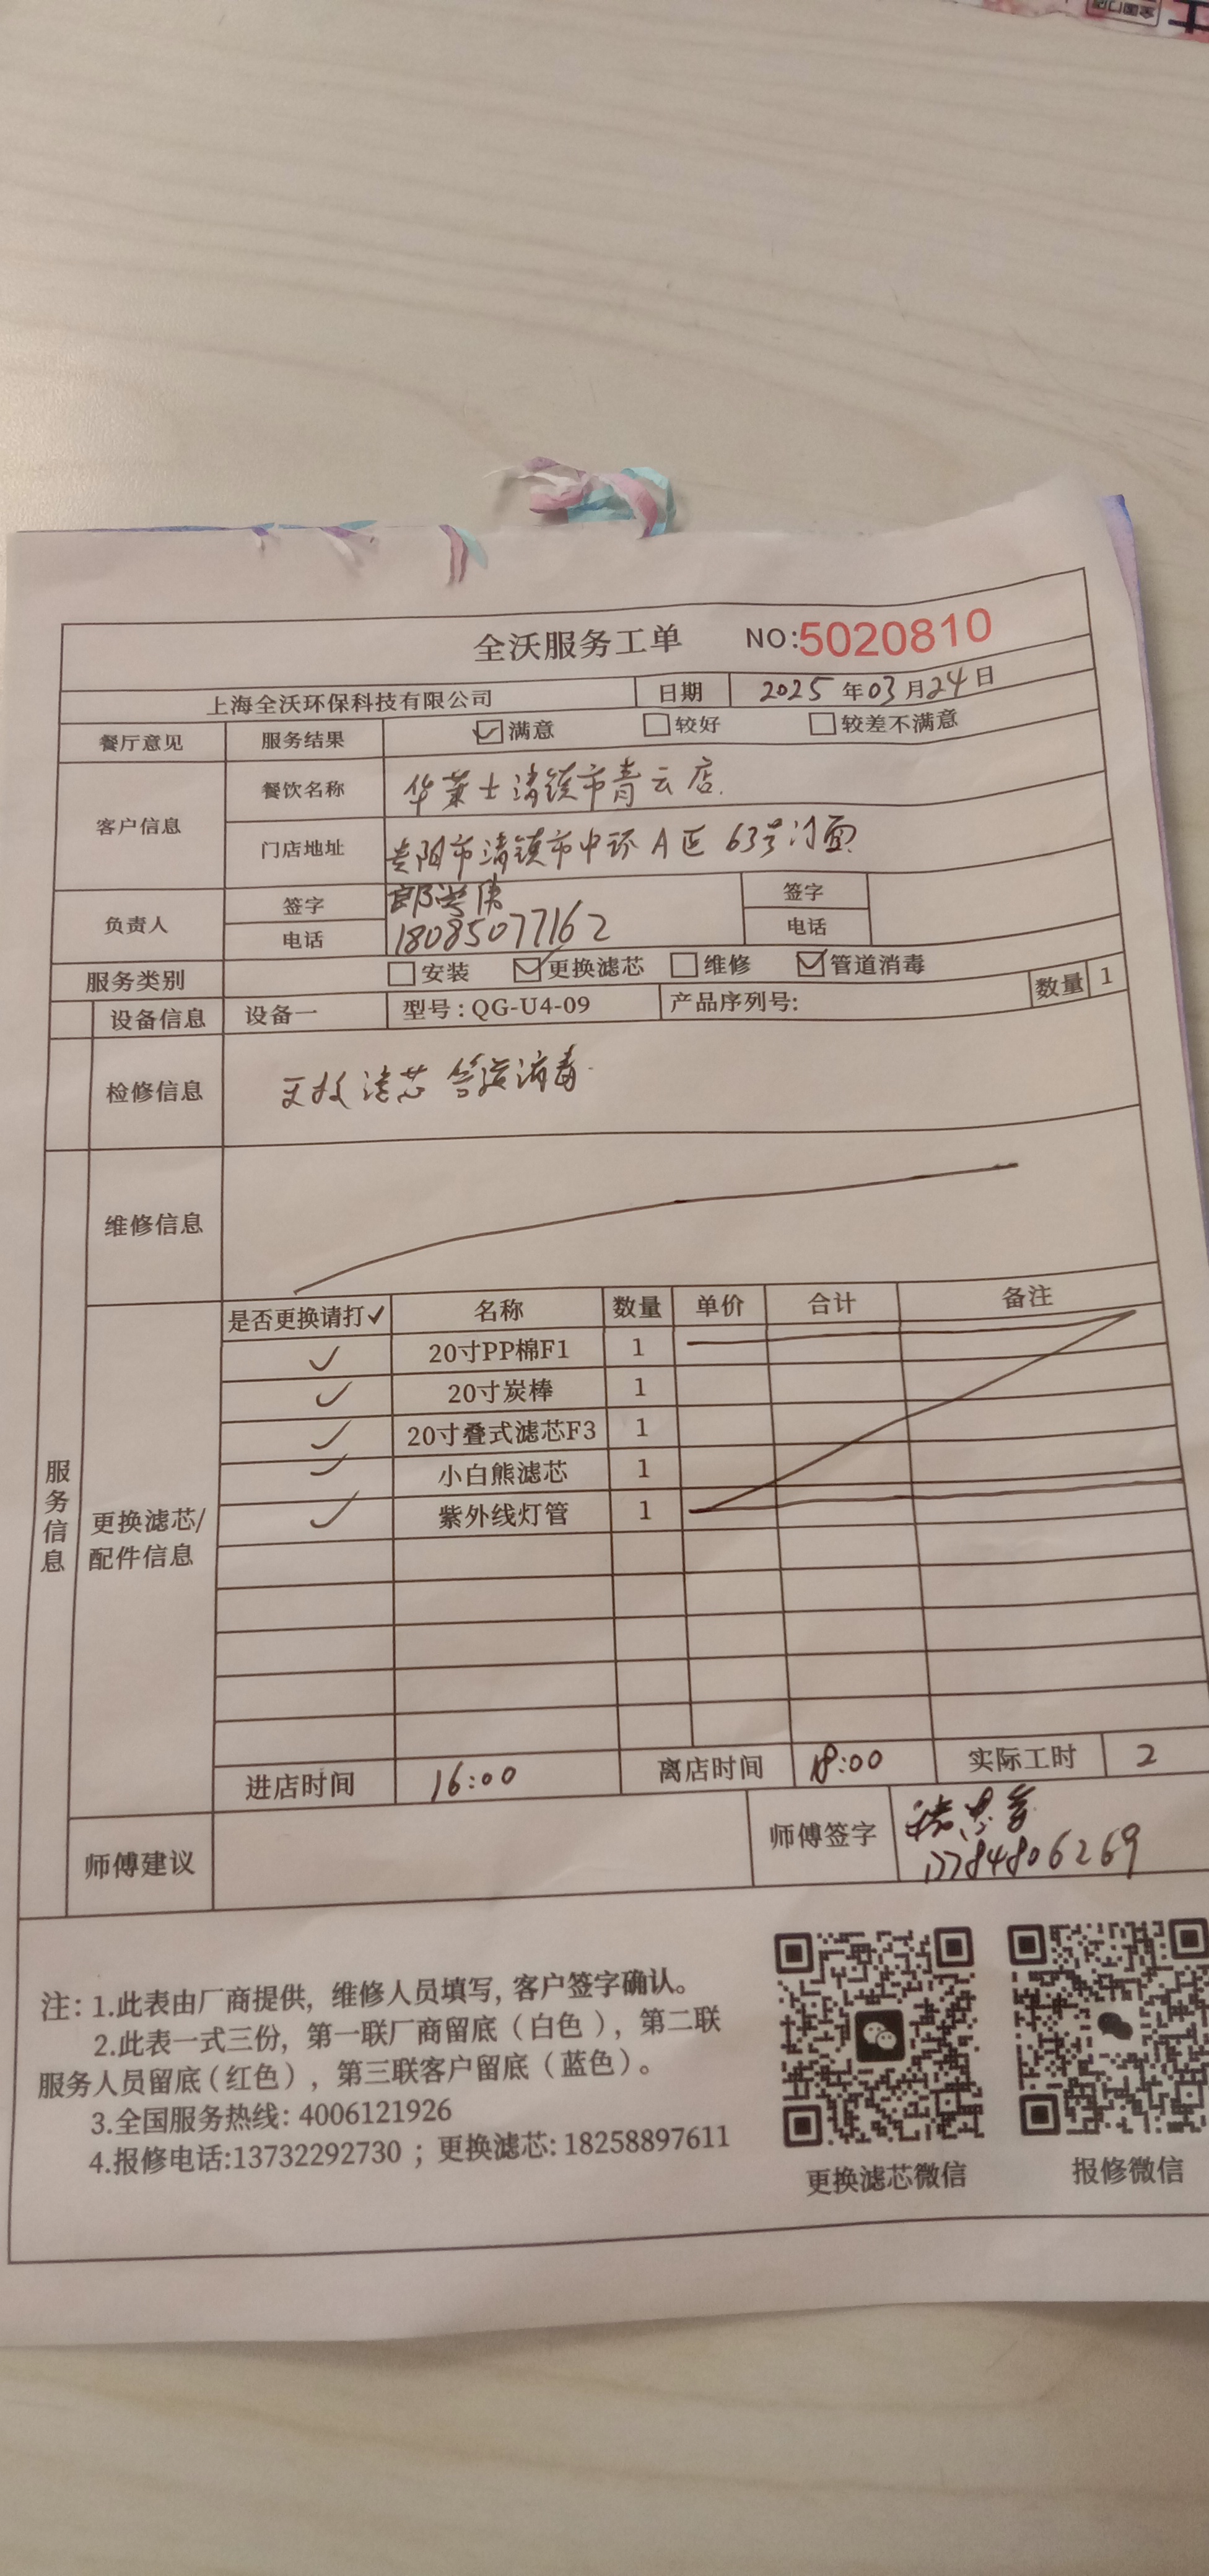 全国门店
全沃服务工单 NO:5020810
上海全沃环保科技有限公司 日期 2025年03月24日
餐厅意见 服务结果 ☑满意 ☐较好 ☐较差不满意
客户信息 餐饮名称 华莱士清镇市青云店
门店地址 贵阳市清镇市中环A区63号门面
负责人 签字 签字
电话 18085077162 电话
服务类别 ☐安装 ☑更换滤芯 ☐维修 ☑管道消毒
设备信息 设备一 型号:QG-U4-09 产品序列号: 数量 1
检修信息 更换滤芯 管道消毒
维修信息
服务信息
更换滤芯/配件信息
是否更换请打✓ 名称 数量 单价 合计 备注
✓ 20寸PP棉F1 1
✓ 20寸炭棒 1
✓ 20寸叠式滤芯F3 1
✓ 小白熊滤芯 1
✓ 紫外线灯管 1
进店时间 16:00 离店时间 18:00 实际工时 2
师傅建议 师傅签字
17784806269
注: 1.此表由厂商提供, 维修人员填写, 客户签字确认。
2.此表一式三份, 第一联厂商留底（白色）, 第二联
服务人员留底(红色), 第三联客户留底（蓝色）。
3.全国服务热线: 4006121926
4.报修电话:13732292730 ; 更换滤芯: 18258897611
更换滤芯微信 报修微信